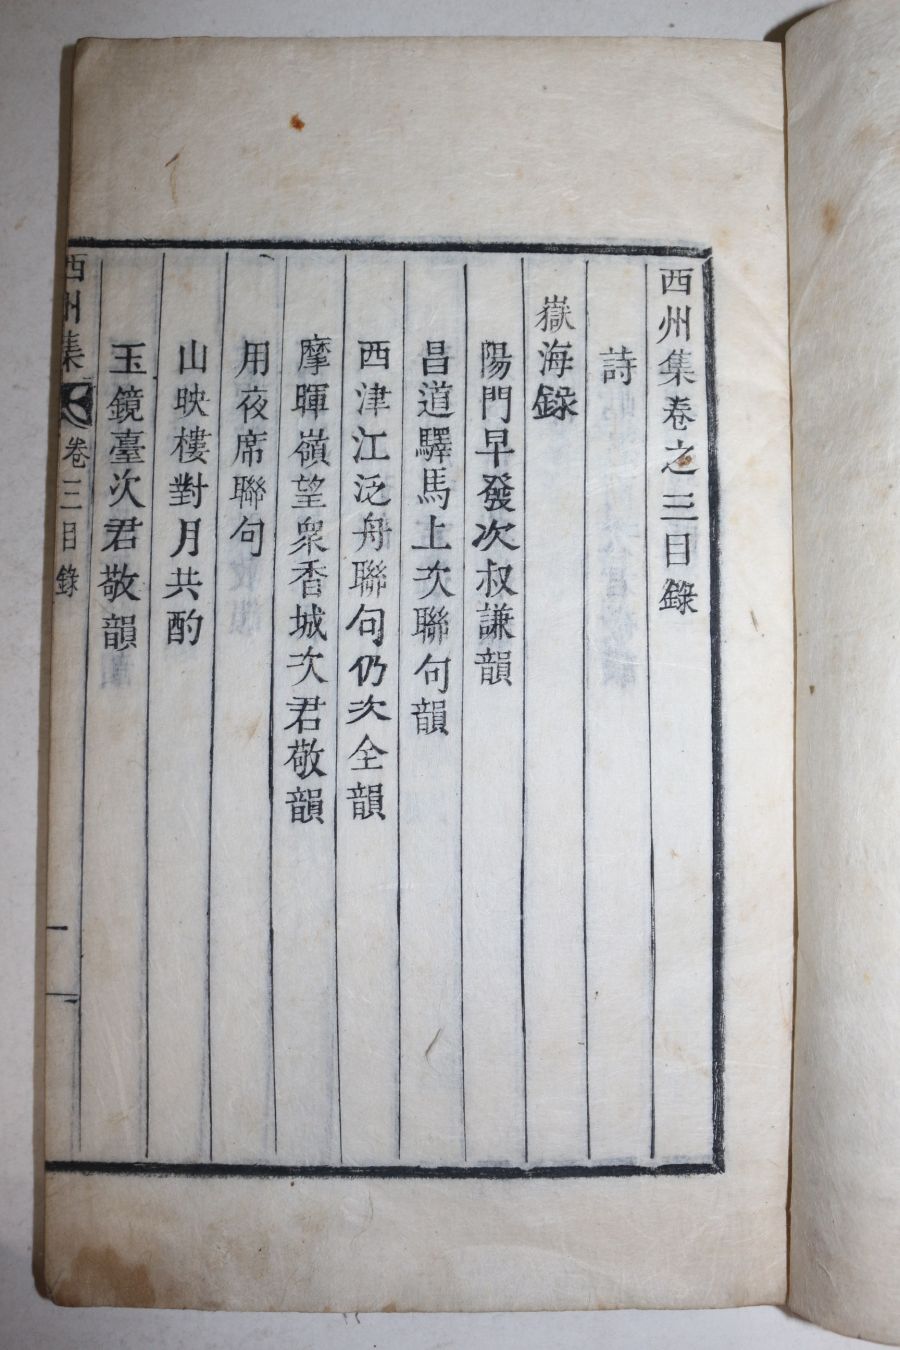 西州集卷之三目錄
詩
嶽海錄
陽門早發次叔謙韻
昌道驛馬上次聯句韻
西津江泛舟聯句仍次全韻
摩暉嶺望衆香城次君敬韻
用夜席聯句
山映樓對月共酌
玉鏡臺次君敬韻
西州集 卷三目錄 一